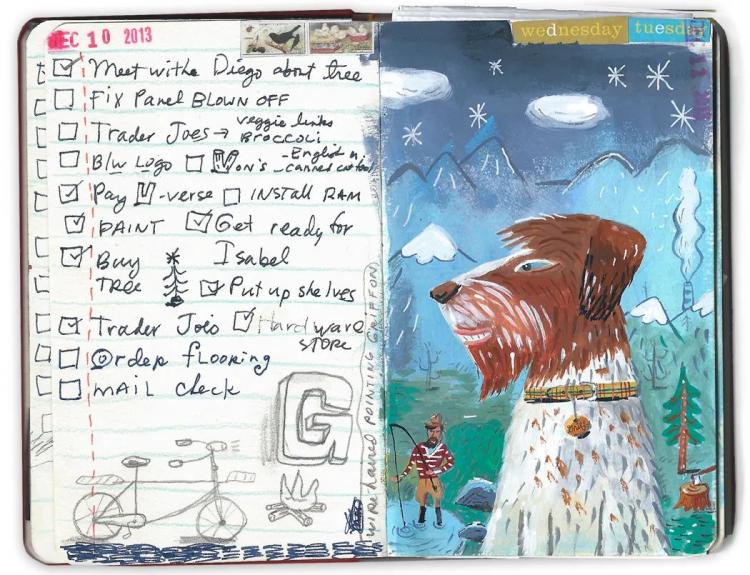 DEC 10 2013
Meet withe Diego about tree
Fix Panel BLOWN OFF
Trader Joes → veggie links
BROCCOLI
Blw Logo
on's
English
canned
Pay U-verse
INSTALL RAM
PAINT
Get ready for
Isabel
Buy
TREE
Put up shelves
Trader Joe's
Hardware
STORE
Order flooring
MAIL check
G
WIRE haired POINTING GRIFFON
wednesday tuesday